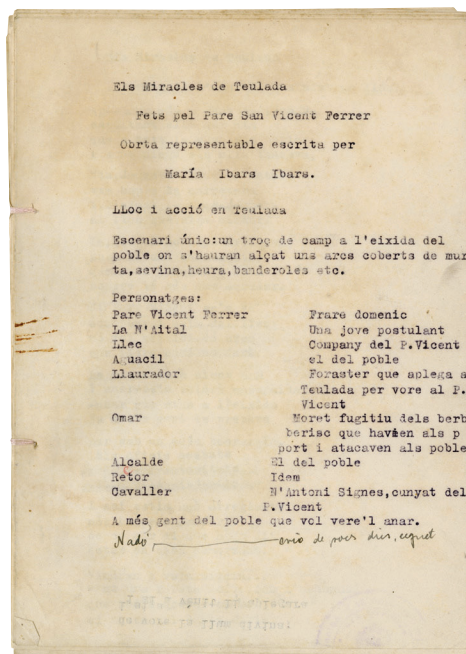 Els Miracles de Teulada
Fets pel Pare San Vicent Ferrer
Obrta representable escrita per
María Ibars Ibars.
LLoc i acció en Teulada
Escenari únic:un troç de camp a l'eixida del
poble on s'hauran alçat uns arcs coberts de mur
ta,sevina,heura,banderoles etc.
Personatges:
Pare Vicent Ferrer Frare domenic
La N'Aital Una jove postulant
Llec Company del P.Vicent
Aguacil el del poble
Llaurador Foraster que aplega a
Teulada per vore al P.
Vicent
Omar Moret fugitiu dels berb
berisc que havien als p
port i atacaven als poble
Alcalde El del poble
Retor Idem
Cavaller N'Antoni Signes,cunyat del
P.Vicent
A més gent del poble que vol vere'l anar.
Nadó de pocs dies, ceguet